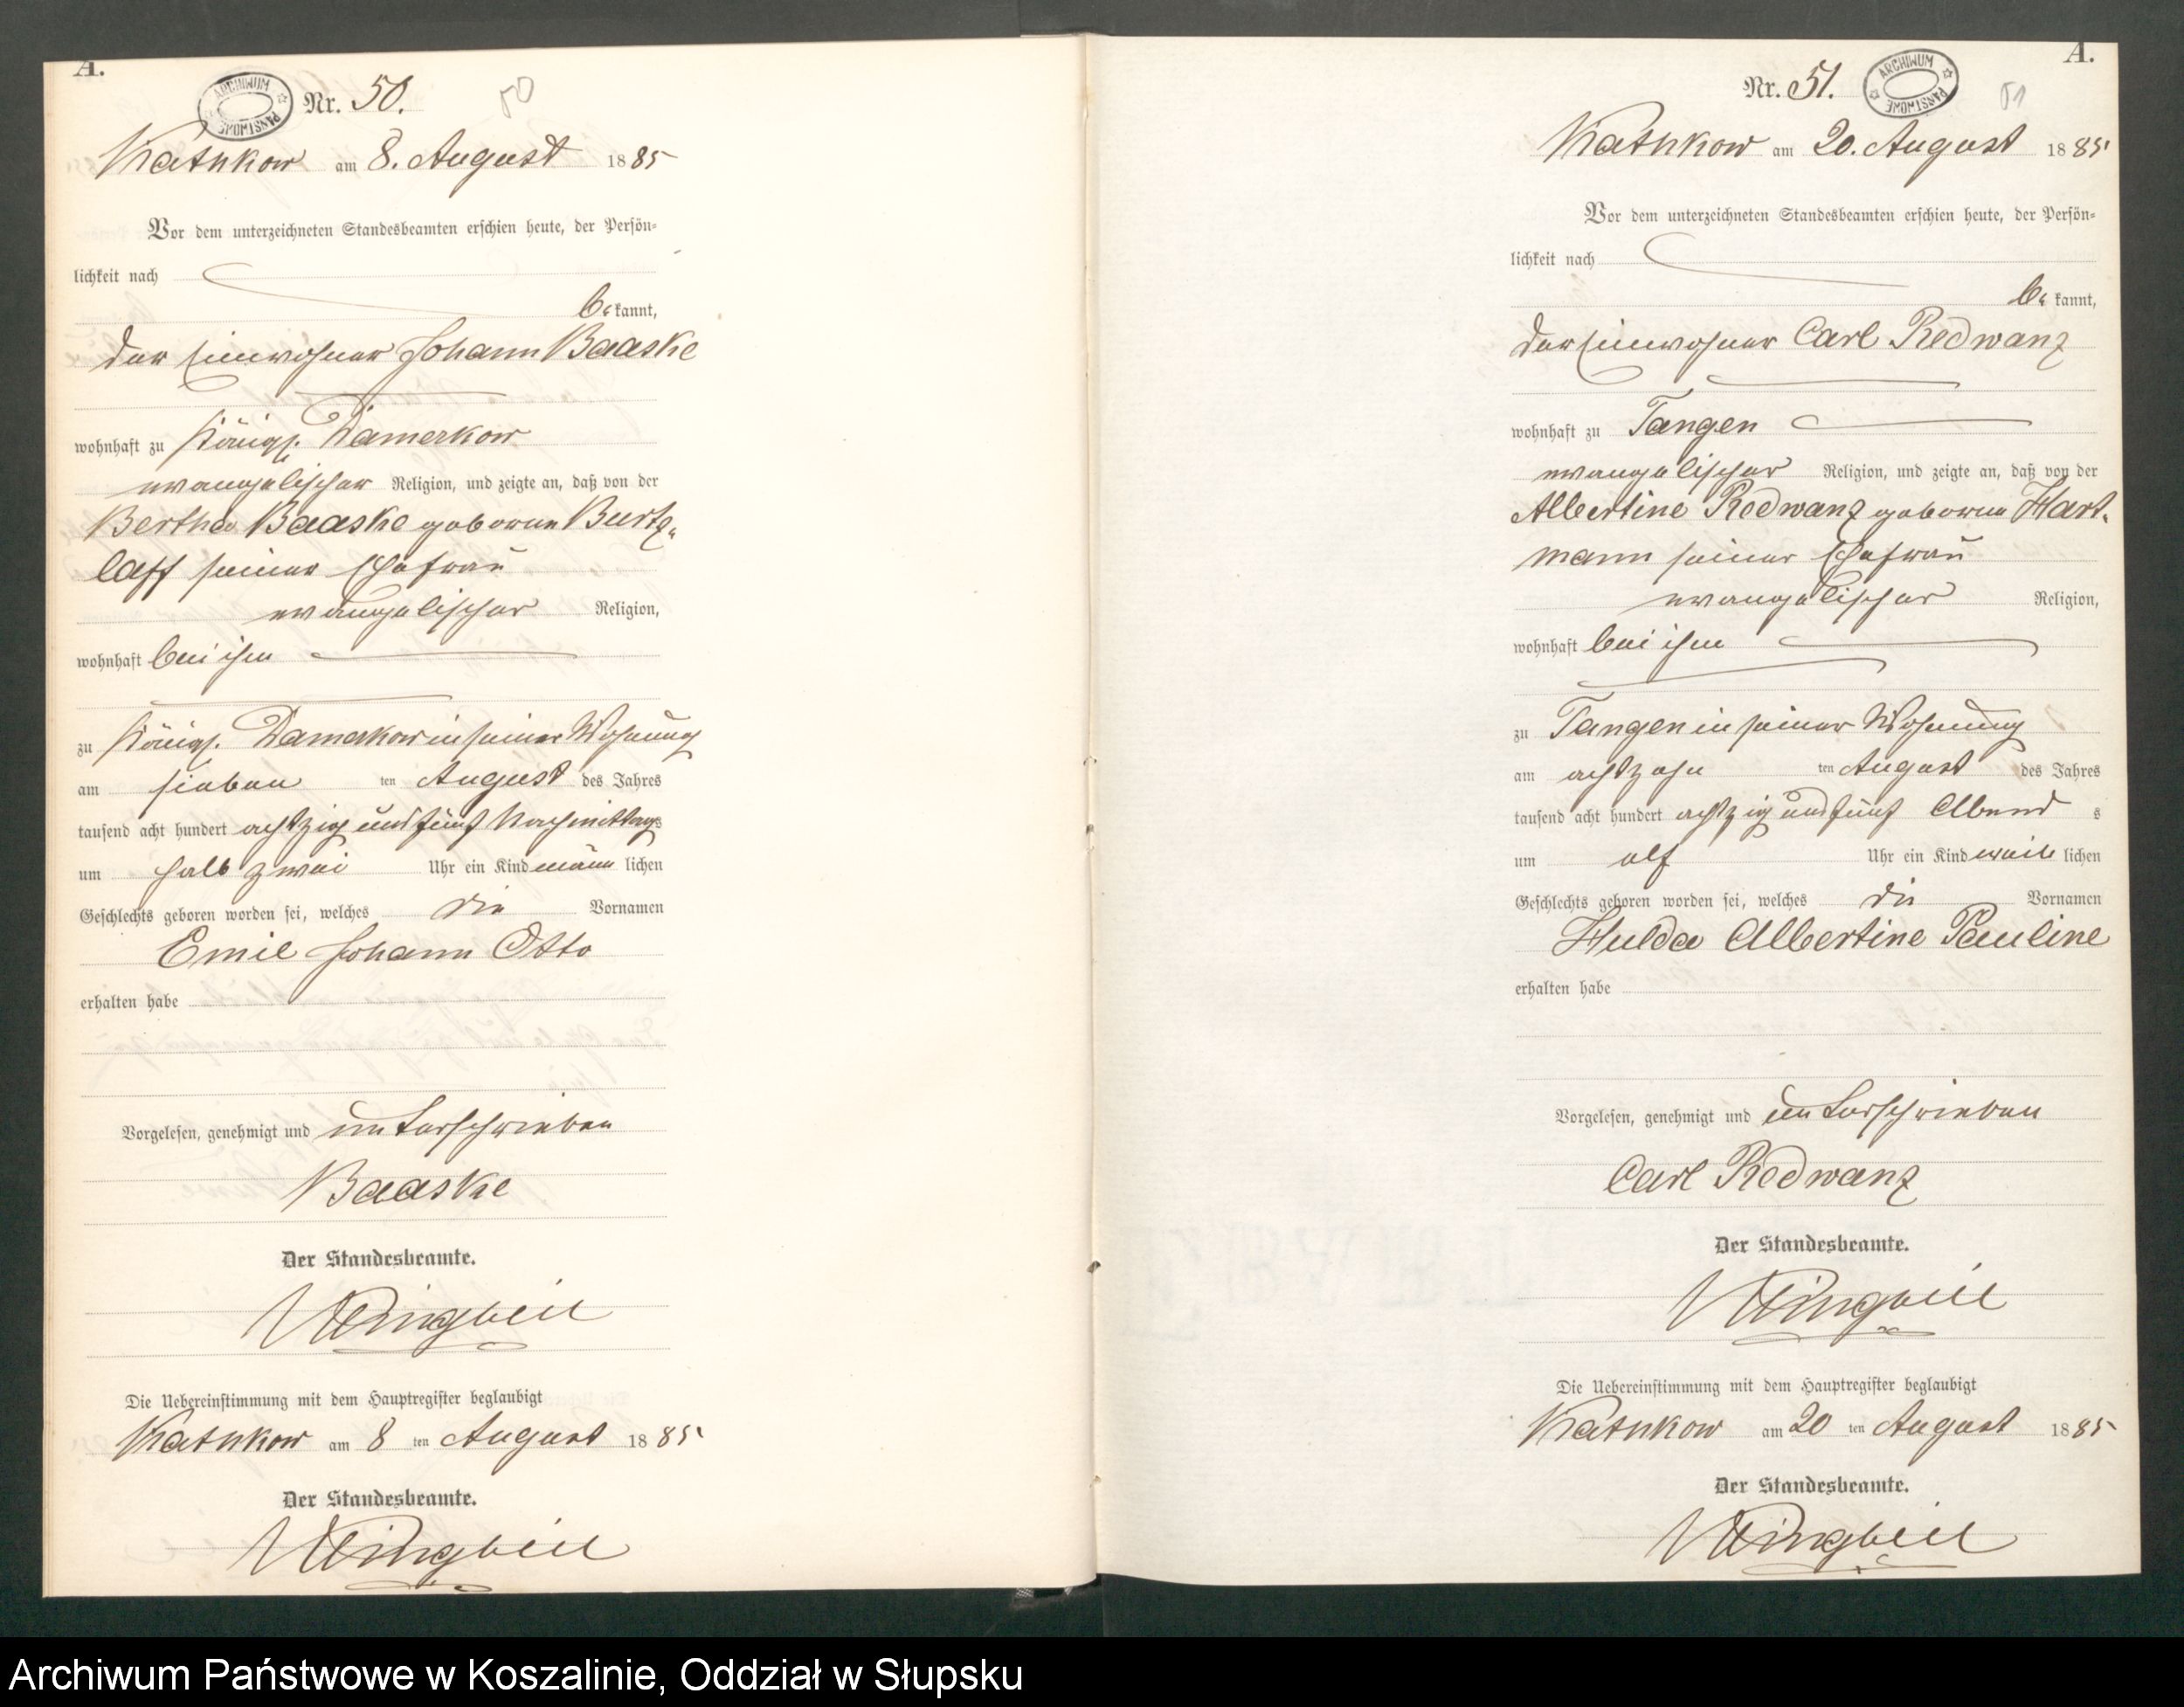 A.
ARCHIWUM PAŃSTWOWE
Nr. 50.
50
Kathkow am 8. August 1885
Vor dem unterzeichneten Standesbeamten erschien heute, der Persön-
lichkeit nach
bekannt,
der Einwohner Johann Baaske
wohnhaft zu Königl. Damerkow
evangelischer Religion, und zeigte an, daß von der
Bertha Baaske geborne Burtz-
laff seiner Ehefrau
evangelischer Religion,
wohnhaft bei ihm
zu Königl. Damerkow in seiner Wohnung
am sieben ten August des Jahres
tausend acht hundert achtzig und fünf Nachmittags
um halb zwei Uhr ein Kind männlichen
Geschlechts geboren worden sei, welches die Vornamen
Emil Johann Otto
erhalten habe
Vorgelesen, genehmigt und unterschrieben
Baaske
Der Standesbeamte.
Die Uebereinstimmung mit dem Hauptregister beglaubigt
Kathkow am 8 ten August 1885
Der Standesbeamte.
A.
Nr. 51.
ARCHIWUM PAŃSTWOWE
51
Kathkow am 20. August 1885
Vor dem unterzeichneten Standesbeamten erschien heute, der Persön-
lichkeit nach
bekannt,
der Einwohner Carl Redwanz
wohnhaft zu Tangen
evangelischer Religion, und zeigte an, daß von der
Albertine Redwanz geborne Hart-
mann seiner Ehefrau
evangelischer Religion,
wohnhaft bei ihm
zu Tangen in seiner Wohnung
am achtzehn ten August des Jahres
tausend acht hundert achtzig und fünf Abends
um elf Uhr ein Kind weiblichen
Geschlechts geboren worden sei, welches die Vornamen
Hulda Albertine Pauline
erhalten habe
Vorgelesen, genehmigt und unterschrieben
Carl Redwanz
Der Standesbeamte.
Die Uebereinstimmung mit dem Hauptregister beglaubigt
Kathkow am 20 ten August 1885
Der Standesbeamte.
Archiwum Państwowe w Koszalinie, Oddział w Słupsku